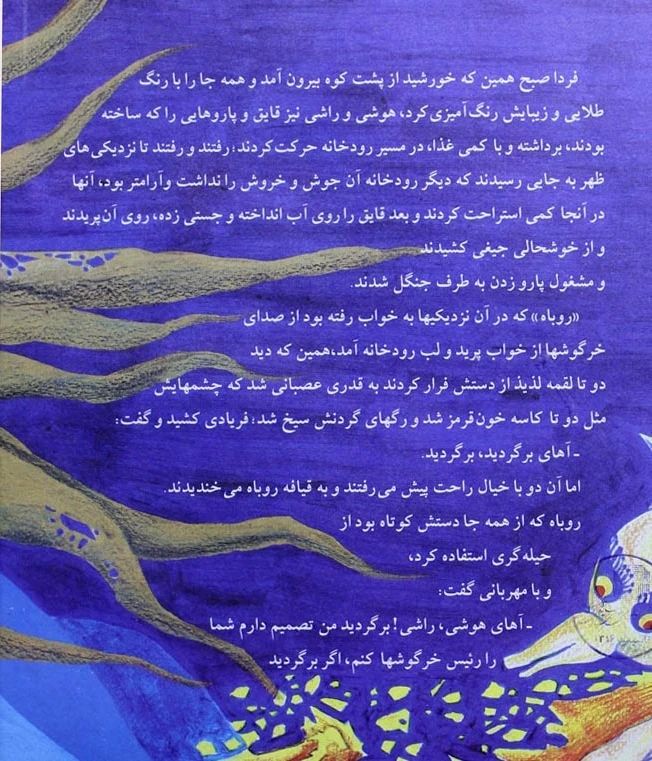 فردا صبح همین که خورشید از پشت کوه بیرون آمد و همه جا را با رنگ
طلایی و زیبایش رنگ‌آمیزی کرد، هوشی و راشی نیز قایق و پاروهایی را که ساخته
بودند، برداشته و با کمی غذا، در مسیر رودخانه حرکت کردند؛ رفتند و رفتند تا نزدیکی‌های
ظهر به جایی رسیدند که دیگر رودخانه آن جوش و خروش را نداشت وآرامتر بود، آنها
در آنجا کمی استراحت کردند و بعد قایق را روی آب انداخته و جستی زده، روی آن پریدند
و از خوشحالی جیغی کشیدند
و مشغول پارو زدن به طرف جنگل شدند.
«روباه» که در آن نزدیکیها به خواب رفته بود از صدای
خرگوشها از خواب پرید و لب رودخانه آمد،همین که دید
دو تا لقمه لذیذ از دستش فرار کردند به قدری عصبانی شد که چشمهایش
مثل دو تا کاسه خون قرمز شد و رگهای گردنش سیخ شد؛ فریادی کشید و گفت:
- آهای برگردید، برگردید.
اما آن دو با خیال راحت پیش می‌رفتند و به قیافه روباه می‌خندیدند.
روباه که از همه جا دستش کوتاه بود از
حیله‌گری استفاده کرد،
و با مهربانی گفت:
- آهای هوشی، راشی! برگردید من تصمیم دارم شما
را رئیس خرگوشها کنم، اگر برگردید